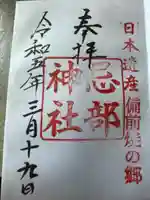 日本遺産 備前焼の郷
奉拝
忌部
神社
令和五年三月十九日